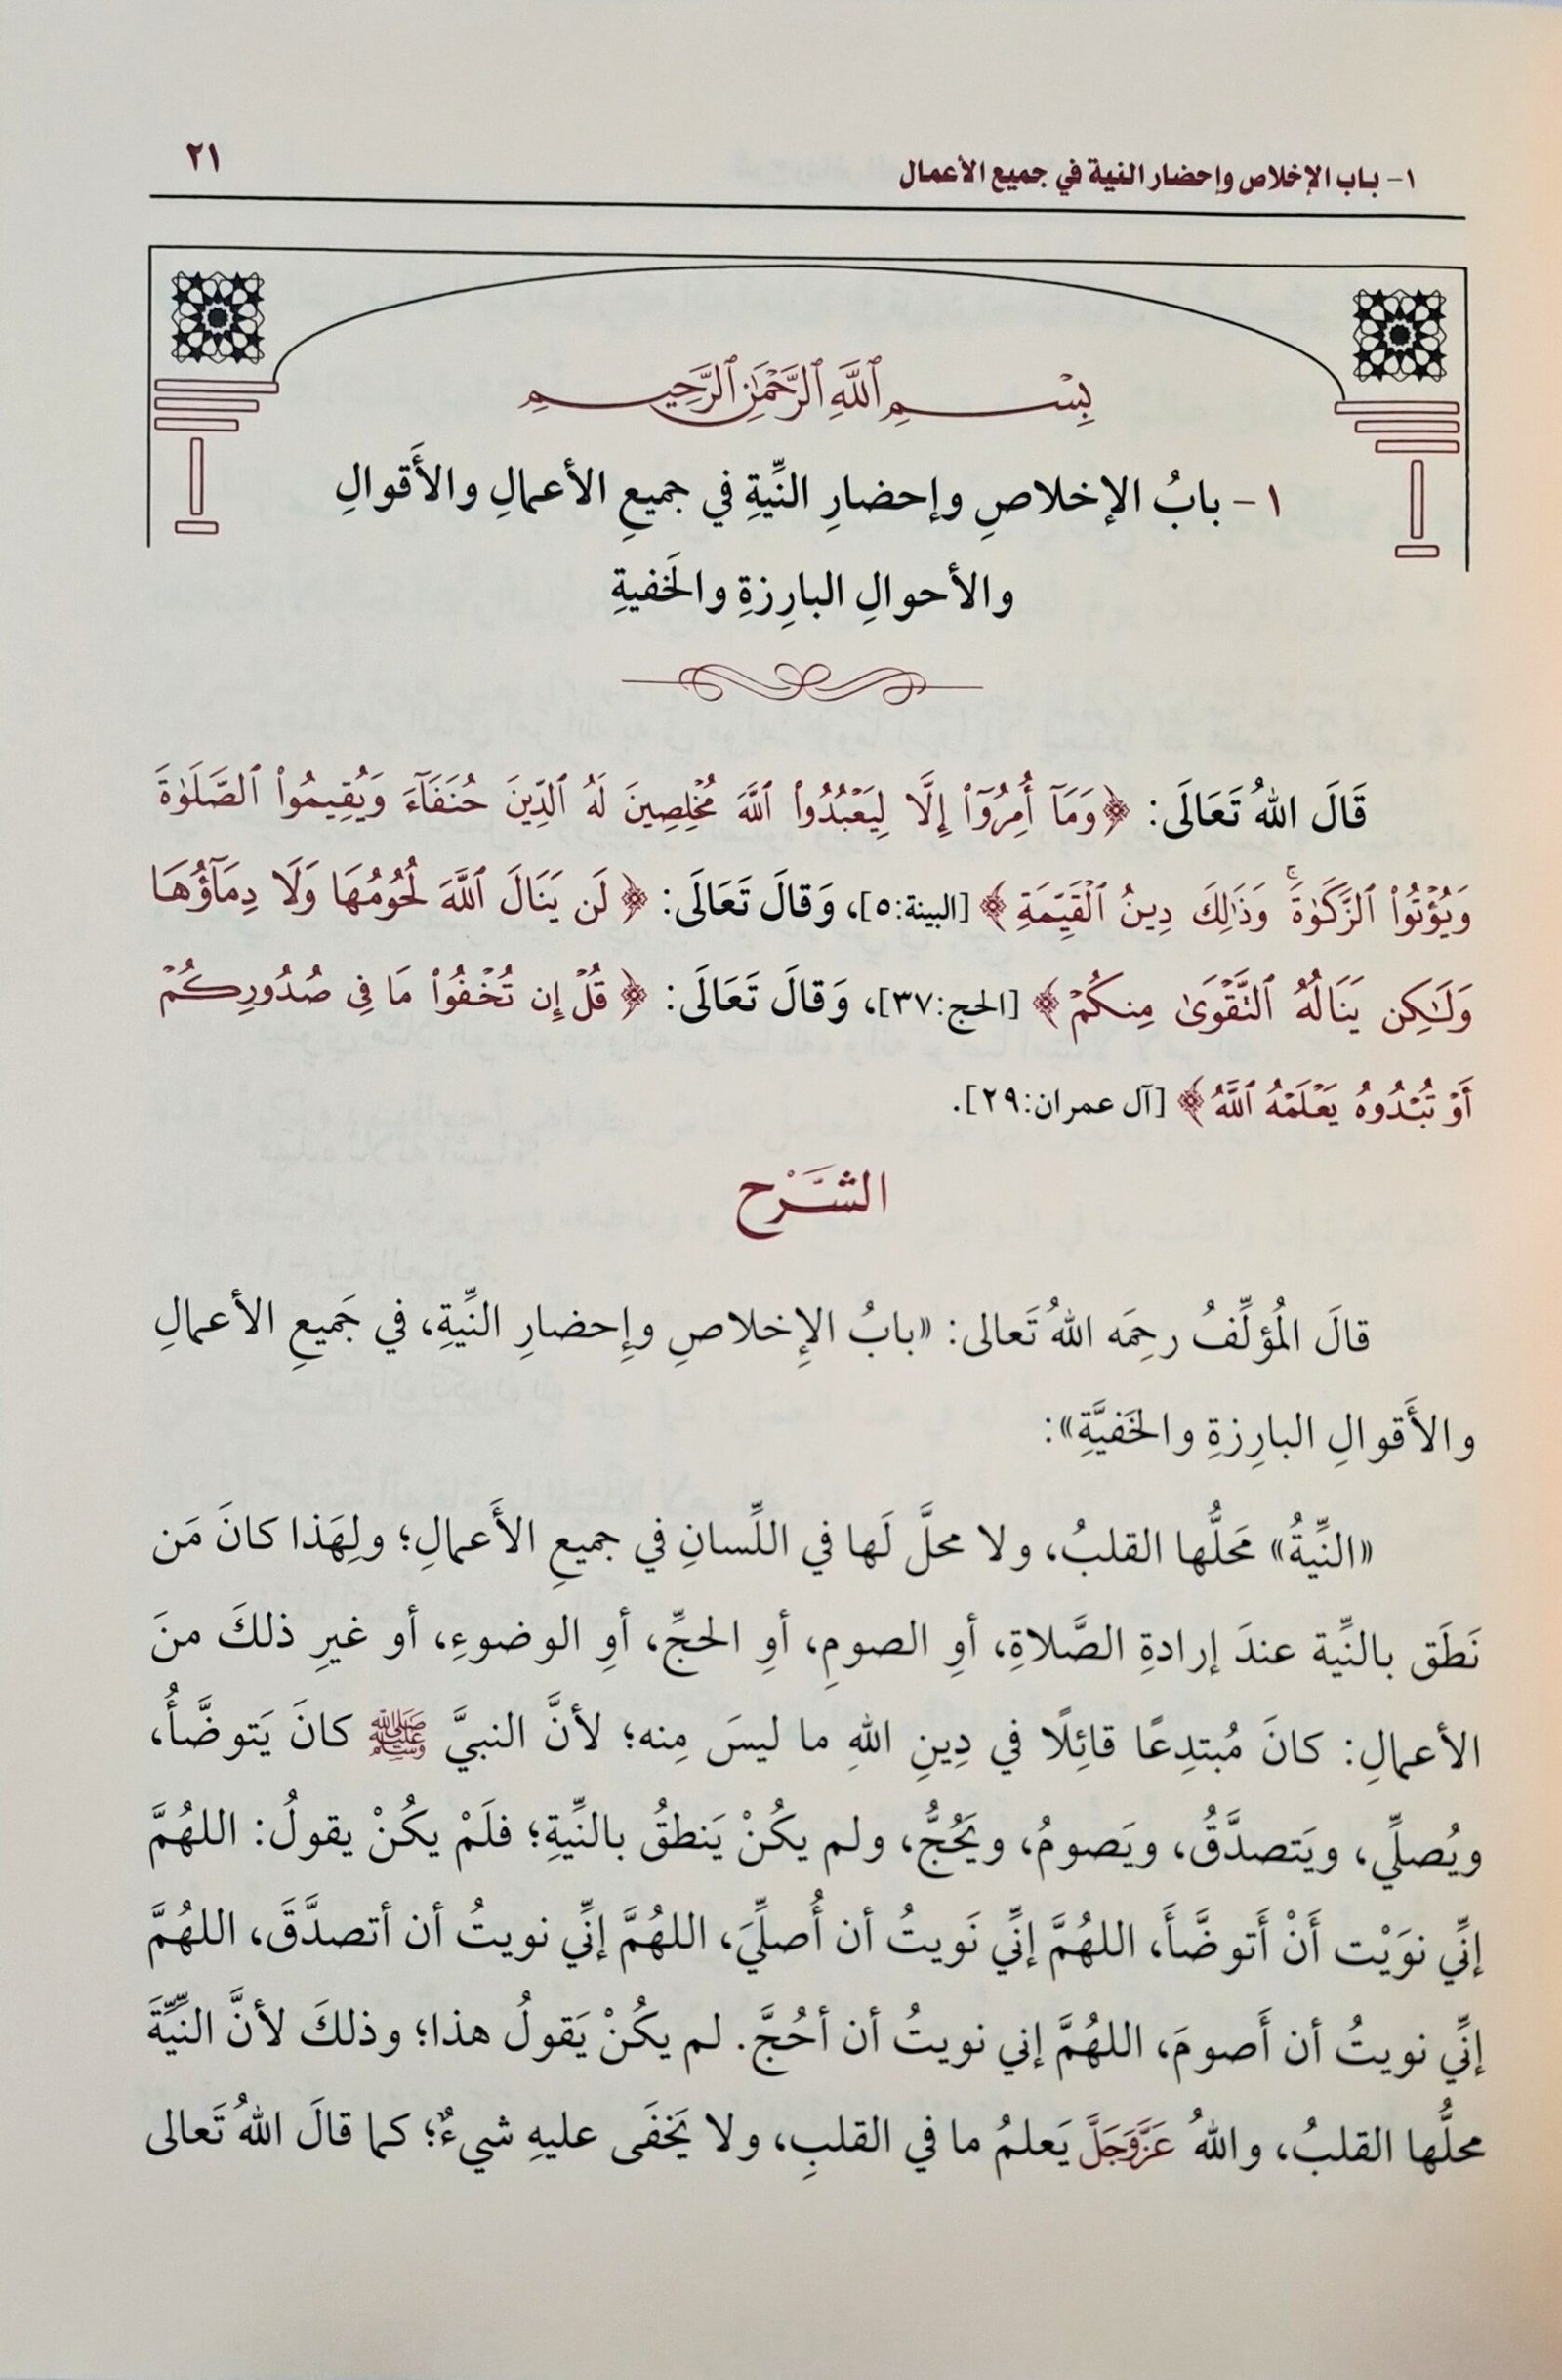 ١- باب الإخلاص وإحضار النية في جميع الأعمال ٢١
بِسْمِ ٱللَّهِ ٱلرَّحْمَٰنِ ٱلرَّحِيمِ
١ - بابُ الإخلاصِ وإحضارِ النِّيَّةِ في جميعِ الأعمالِ والأَقوالِ
والأحوالِ البارِزةِ والخَفيةِ
قَالَ اللهُ تَعَالَى: ﴿وَمَآ أُمِرُوٓاْ إِلَّا لِيَعۡبُدُواْ ٱللَّهَ مُخۡلِصِينَ لَهُ ٱلدِّينَ حُنَفَآءَ وَيُقِيمُواْ ٱلصَّلَوٰةَ
وَيُؤۡتُواْ ٱلزَّكَوٰةَۚ وَذَٰلِكَ دِينُ ٱلۡقَيِّمَةِ﴾ [البينة:٥]، وَقالَ تَعَالَى: ﴿لَن يَنَالَ ٱللَّهَ لُحُومُهَا وَلَا دِمَآؤُهَا
وَلَٰكِن يَنَالُهُ ٱلتَّقۡوَىٰ مِنكُمۡ﴾ [الحج:٣٧]، وَقالَ تَعَالَى: ﴿قُلۡ إِن تُخۡفُواْ مَا فِي صُدُورِكُمۡ
أَوۡ تُبۡدُوهُ يَعۡلَمۡهُ ٱللَّهُ﴾ [آل عمران:٢٩].
الشَّرْح
قالَ المُؤلِّفُ رحِمَه اللهُ تَعالى: «بابُ الإخلاصِ وإِحضارِ النِّيَّةِ، في جَميعِ الأعمالِ
والأَقوالِ البارِزةِ والخَفيَّةِ»:
«النِّيَّةُ» مَحَلُّها القلبُ، ولا محلَّ لَها في اللِّسانِ في جميعِ الأَعمالِ؛ ولِهَذا كانَ مَن
نَطَق بالنِّية عندَ إرادةِ الصَّلاةِ، أوِ الصومِ، أوِ الحجِّ، أوِ الوضوءِ، أو غيرِ ذلكَ منَ
الأعمالِ: كانَ مُبتدِعًا قائِلًا في دِينِ اللهِ ما ليسَ مِنه؛ لأنَّ النبيَّ ﷺ كانَ يَتوضَّأُ،
ويُصلِّي، ويَتصدَّقُ، ويَصومُ، ويَحُجُّ، ولم يكُنْ يَنطقُ بالنِّيةِ؛ فلَمْ يكُنْ يقولُ: اللهُمَّ
إنِّي نوَيْت أَنْ أَتوضَّأَ، اللهُمَّ إنِّي نَويتُ أن أُصلِّيَ، اللهُمَّ إنِّي نويتُ أن أتصدَّقَ، اللهُمَّ
إنِّي نويتُ أن أَصومَ، اللهُمَّ إني نويتُ أن أحُجَّ. لم يكُنْ يَقولُ هذا؛ وذلكَ لأنَّ النِّيَّةَ
محلُّها القلبُ، واللهُ عَزَّوَجَلَّ يَعلمُ ما في القلبِ، ولا يَخفَى عليهِ شيءٌ؛ كما قالَ اللهُ تَعالى